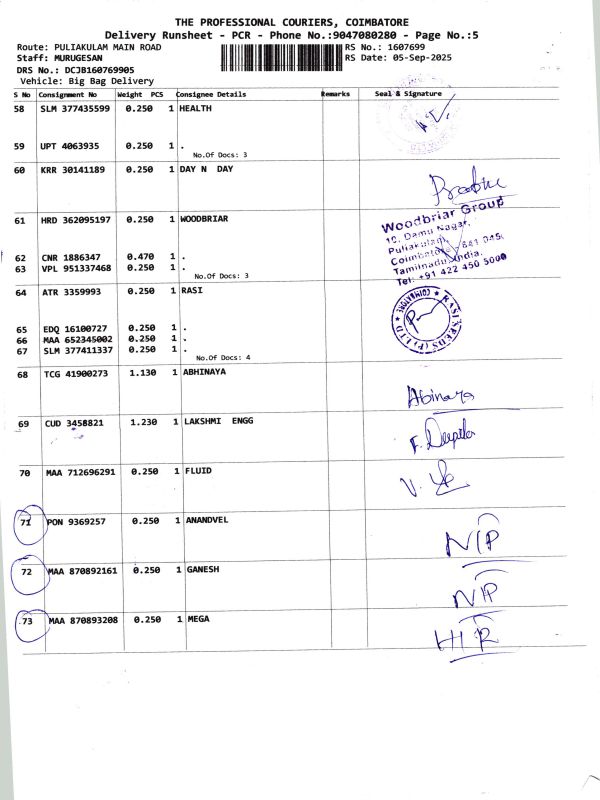 THE PROFESSIONAL COURIERS, COIMBATORE
Delivery Runsheet - PCR - Phone No.:9047080280 - Page No.:5
Route: PULIAKULAM MAIN ROAD RS No.: 1607699
Staff: MURUGESAN RS Date: 05-Sep-2025
DRS No.: DCJB160769905
Vehicle: Big Bag Delivery
S No Consignment No Weight PCS Consignee Details Remarks Seal & Signature
58 SLM 377435599 0.250 1 HEALTH
59 UPT 4063935 0.250 1 .
No.Of Docs: 3
60 KRR 30141189 0.250 1 DAY N DAY
61 HRD 362095197 0.250 1 WOODBRIAR
Woodbriar Group
10, Damu Nagar,
Puliakulam,
Coimbatore - 641 045,
Tamilnadu, India.
Tel: +91 422 450 5000
62 CNR 1886347 0.470 1 .
63 VPL 951337468 0.250 1 .
No.Of Docs: 3
64 ATR 3359993 0.250 1 RASI
RASI SEEDS (P) LTD
COIMBATORE
65 EDQ 16100727 0.250 1 .
66 MAA 652345002 0.250 1 .
67 SLM 377411337 0.250 1 .
No.Of Docs: 4
68 TCG 41900273 1.130 1 ABHINAYA
Abinaya
69 CUD 3458821 1.230 1 LAKSHMI ENGG
F. Deepika
70 MAA 712696291 0.250 1 FLUID
71 PON 9369257 0.250 1 ANANDVEL
N/P
72 MAA 870892161 0.250 1 GANESH
N/P
73 MAA 870893208 0.250 1 MEGA